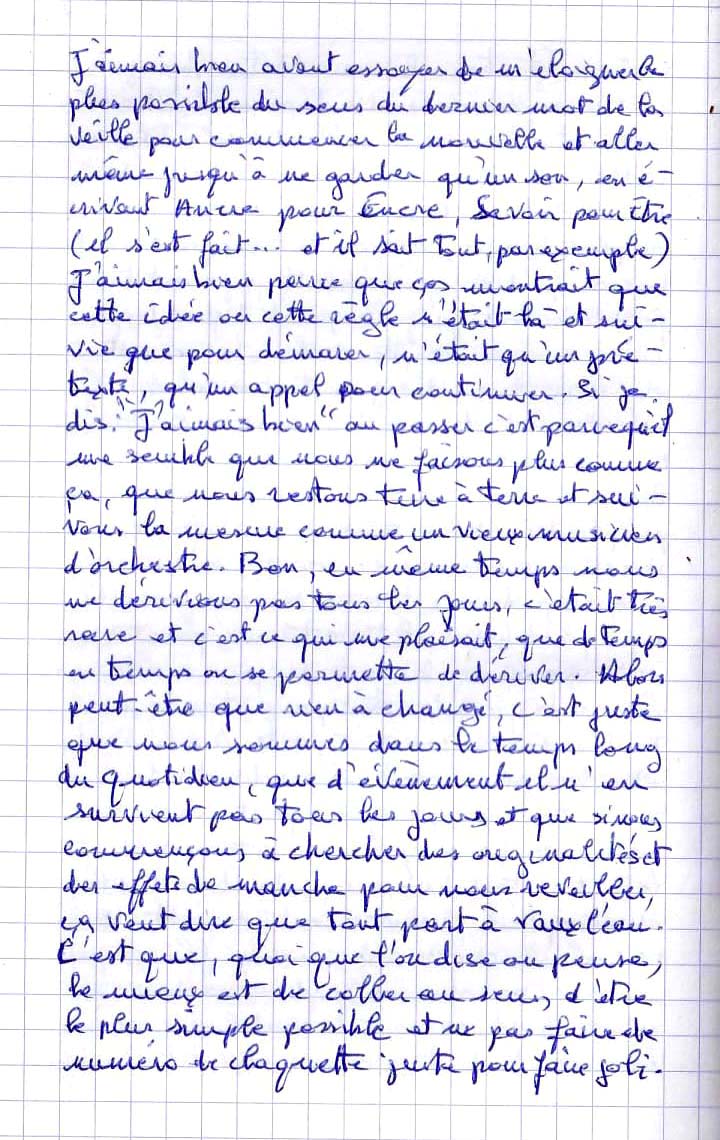 J'aimais bien avant essayer de m'éloigner le
plus possible du sens du dernier mot de la
veille pour commencer la nouvelle et aller
même jusqu'à ne garder qu'un son, en é-
crivant Ancre pour Encre, Savoir pour être
(il s'est fait... et il sait tout, par exemple)
J'aimais bien parce que ça montrait que
cette idée ou cette règle n'était là et sui-
vie que pour démarer, n'était qu'un pré-
texte, qu'un appel pour continuer. Si je
dis "J'aimais bien" au passer c'est parcequ'il
me semble que nous ne faisons plus comme
ça, que nous restons terre à terre et sui-
vons la mesure comme un vieux musicien
d'orchestre. Bon, en même temps nous
ne dérivions pas tous les jours, c'était très
rare et c'est ce qui me plaisait, que de temps
en temps on se permette de dériver. Alors
peut-être que rien à changé, c'est juste
que nous sommes dans le temps long
du quotidien, que d'évènement il n'en
survient pas tous les jours et que si nous
commençons à chercher des originalités et
des effets de manche pour nous réveiller,
ça veut dire que tout part à vaux l'eau.
C'est que, quoi que l'on dise ou pense,
le mieux est de coller au sens, d'être
le plus simple possible et ne pas faire de
numéro de claquette juste pour faire joli.